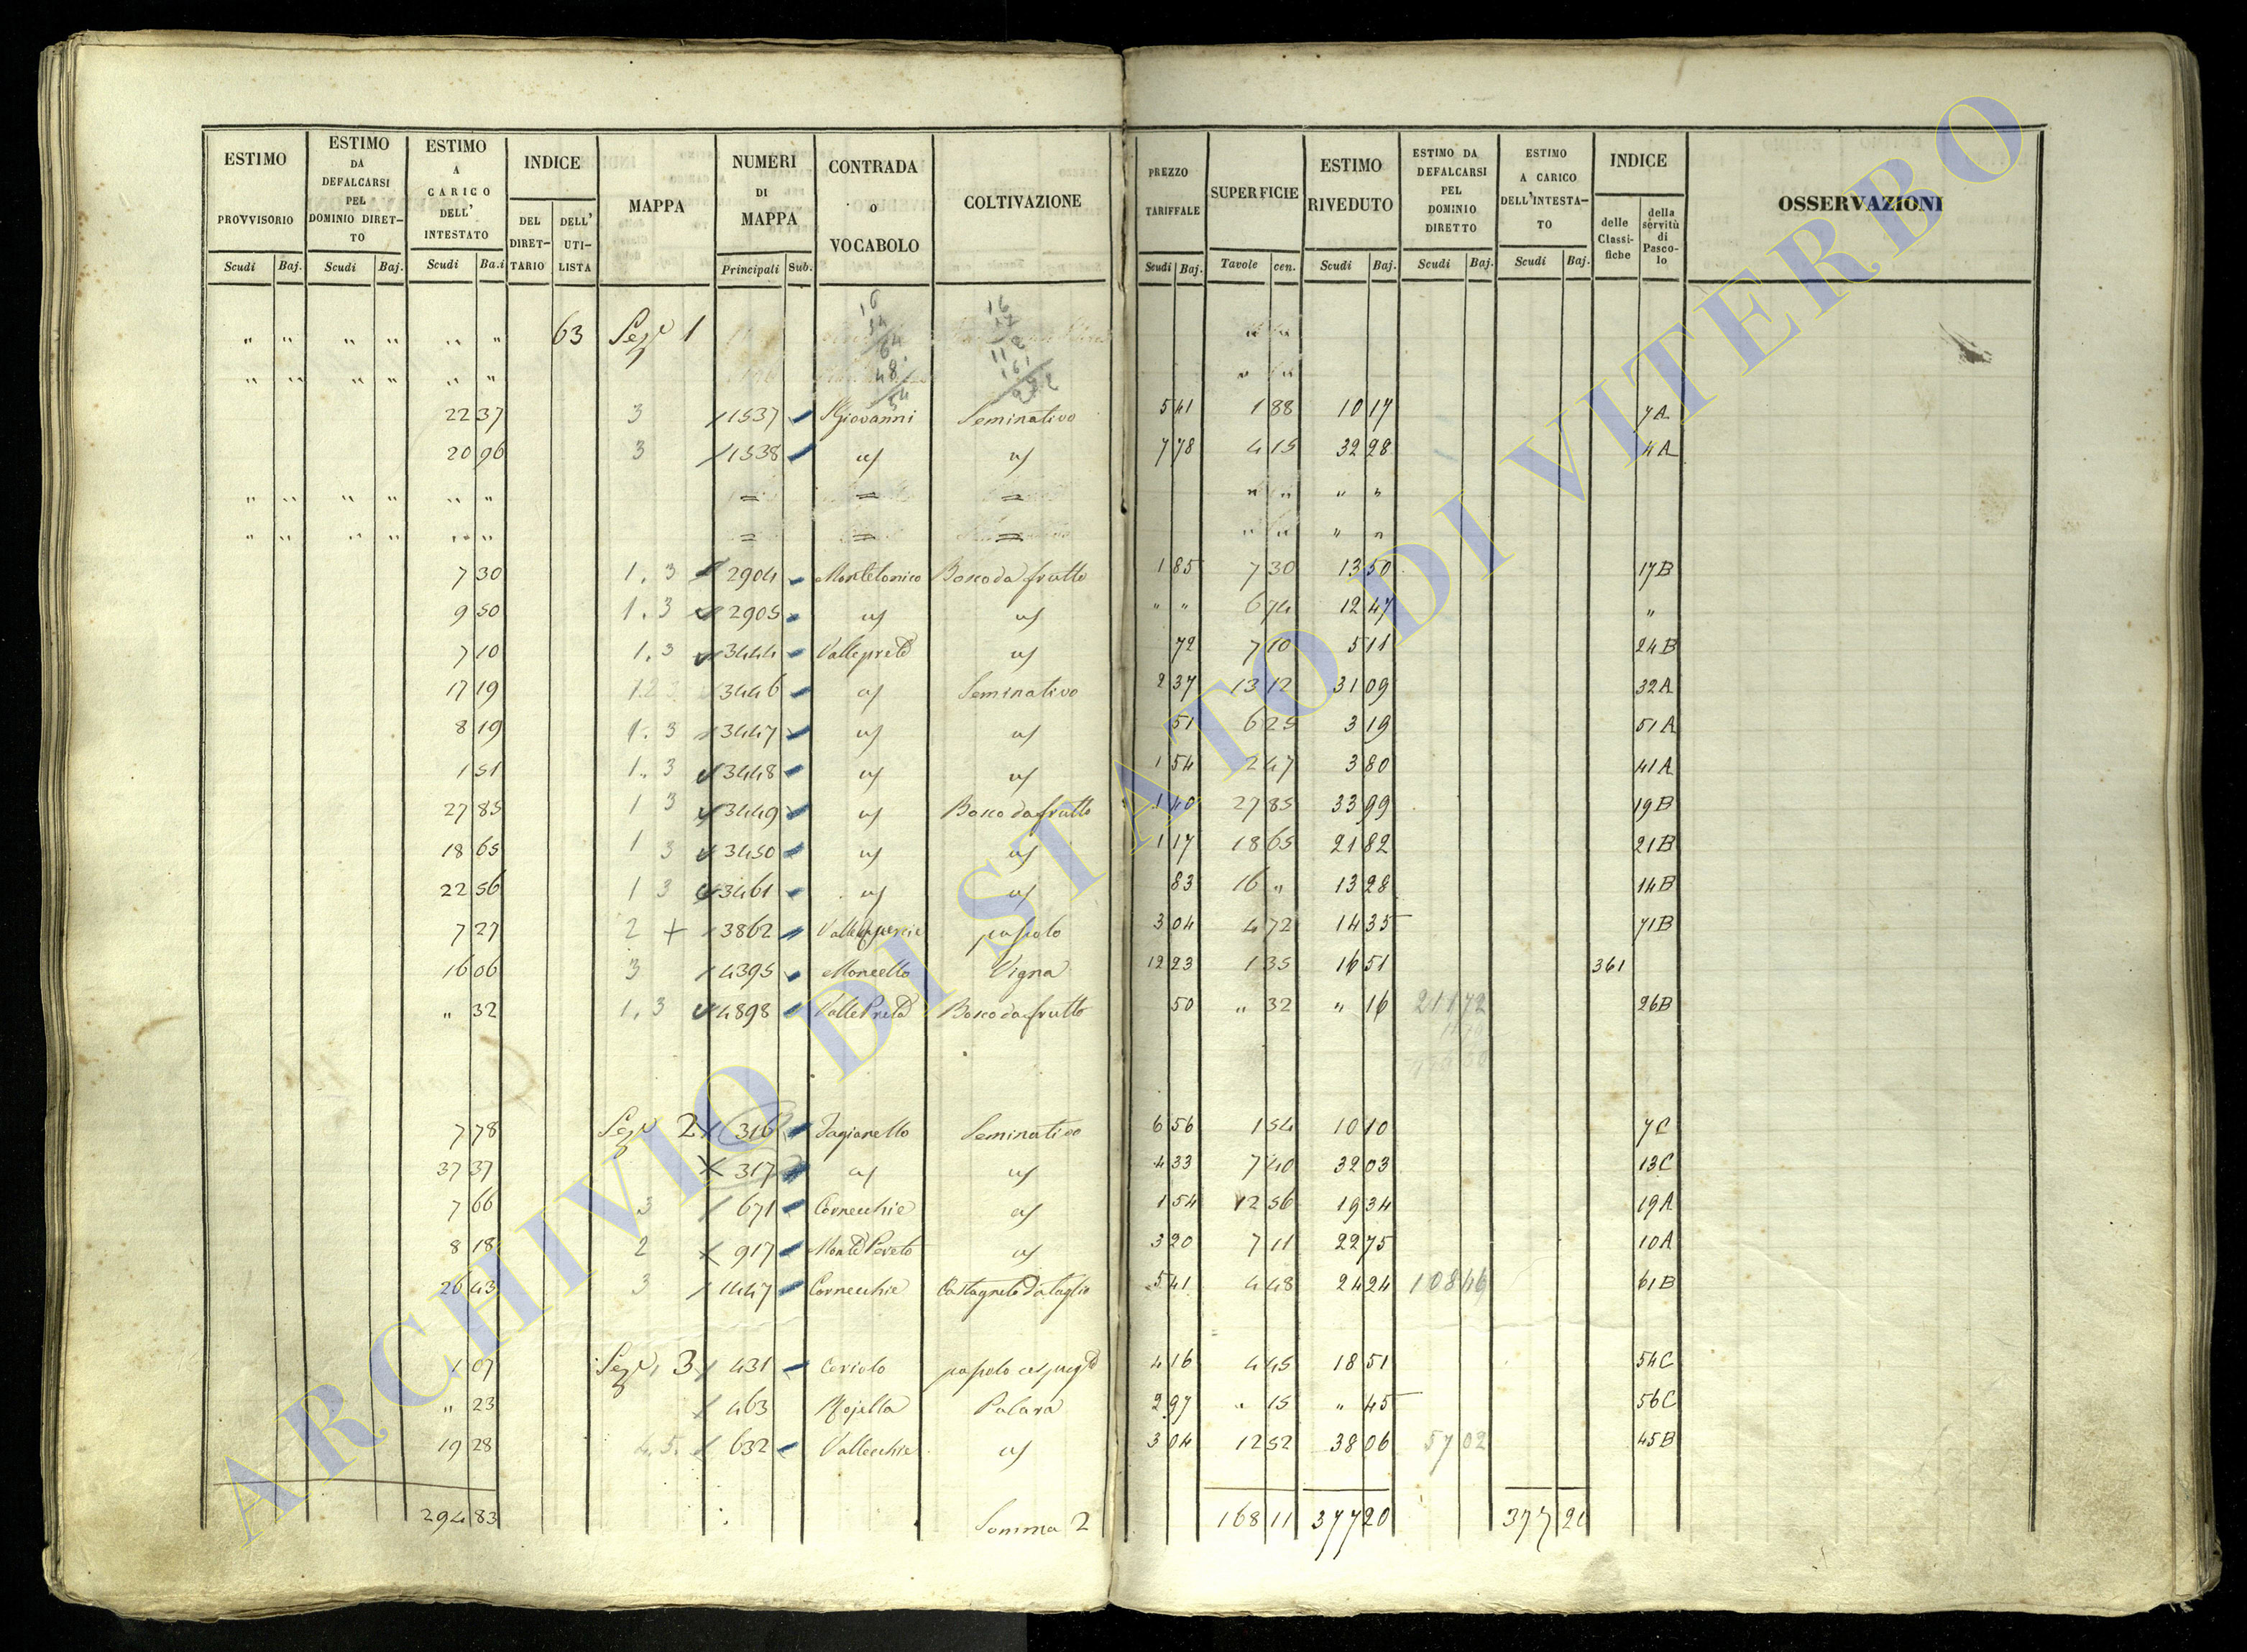 ESTIMO PROVVISORIO Scudi Baj.
ESTIMO DA DEFALCARSI PEL DOMINIO DIRET-TO Scudi Baj.
ESTIMO A CARICO DELL' INTESTATO Scudi Ba.i
INDICE DEL DIRET-TARIO DELL' UTI-LISTA
MAPPA
NUMERI DI MAPPA Principali Sub.
CONTRADA o VOCABOLO
COLTIVAZIONE
PREZZO TARIFFALE Scudi Baj.
SUPERFICIE Tavole cen.
ESTIMO RIVEDUTO Scudi Baj.
ESTIMO DA DEFALCARSI PEL DOMINIO DIRETTO Scudi Baj.
ESTIMO A CARICO DELL'INTESTA-TO Scudi Baj.
INDICE delle Classi-fiche della servitù di Pasco-lo
OSSERVAZIONI
" " " " " " 63 Sezе 1 " "
" " " " " " " "
22 37 3 1537 S Giovanni Seminativo 5 41 1 88 10 17 7A
20 96 3 1538 us us 7 78 4 15 32 28 4A
" " " " " " = = = " " " "
" " " " " " = = = " " " "
7 30 1. 3 2904 Montetonico Bosco da frutto 1 85 7 30 13 50 17B
9 50 1. 3 2905 us us " " 6 74 12 47 "
7 10 1. 3 3444 Valle prete us 72 7 10 5 11 24B
17 19 1 2 3 3446 us Seminativo 2 37 13 12 31 09 32A
8 19 1. 3 3447 us us 51 6 25 3 19 51A
1 51 1. 3 3448 us us 1 54 2 47 3 80 41A
27 85 1 3 3449 us Bosco da frutto 1 40 27 85 33 99 19B
18 65 1 3 3450 us us 1 17 18 65 21 82 21B
22 56 1 3 3461 us us 83 16 " 13 28 14B
7 27 2 + 3862 pascolo 3 04 4 72 14 35 71B
16 06 3 4395 Moncello Vigna 12 23 1 35 16 51 361
" 32 1. 3 4898 Valle Prete Bosco da frutto 50 " 32 " 16 211 72 26B
7 78 Seze 2 316 Fagianello Seminativo 6 56 1 54 10 10 7C
37 37 317 us us 4 33 7 40 32 03 13C
7 66 3 671 Cornecchie us 1 54 12 56 19 34 19A
8 18 2 917 Monte Pereto us 3 20 7 11 22 75 10A
26 43 3 1447 Cornecchie Castagneto da taglio 5 41 4 48 24 24 108 46 61B
1 07 Seze 3 431 Ceriolo pascolo cespuglto 4 16 4 45 18 51 54C
" 23 463 Mojella Palara 2 97 " 15 " 45 56C
19 28 4. 5. 632 Vallecchie us 3 04 12 52 38 06 57 02 45B
294 83 Somma 2 168 11 377 20 377 20
ARCHIVIO DI STATO DI VITERBO